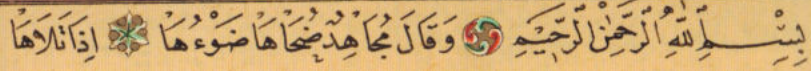 بِسْمِ اللهِ الرَّحْمٰنِ الرَّحِيْمِ وَقَالَ مُجَاهِدٌ ضُحَاهَا ضَوْءُهَا اِذَا تَلَاهَا